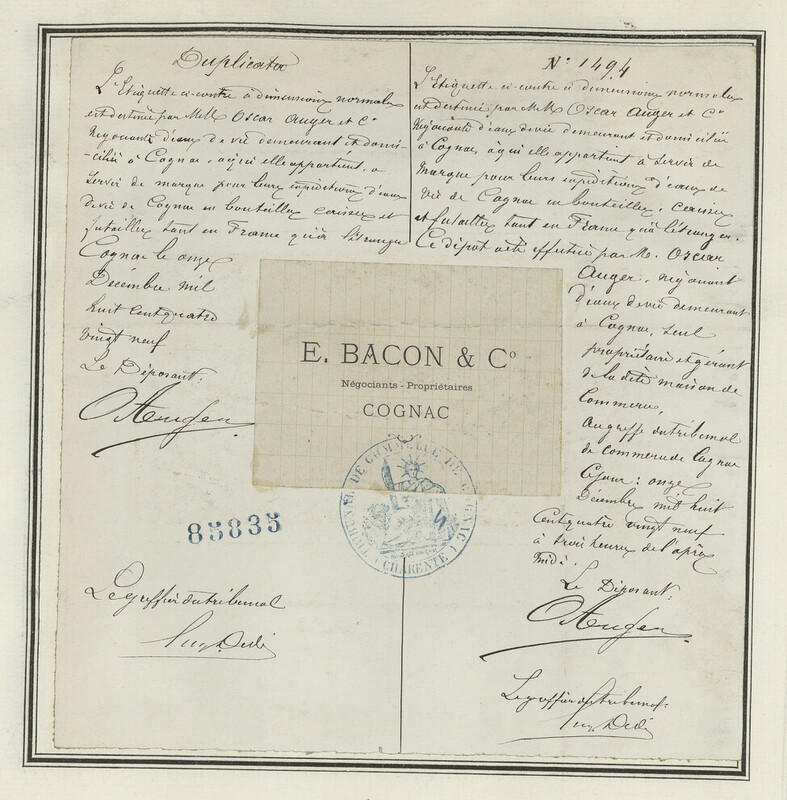 Duplicata
L'Etiquette ci-contre à dimensions normales
est destinée par MM. Oscar Auger et Cº
Négociants d'eaux de vie demeurant et domi-
ciliés à Cognac, à qui elle appartient, à
servir de marque pour leurs expéditions d'eaux
de vie de Cognac en bouteilles, caisses et
futailles tant en France qu'à l'étranger
Cognac le onze
Décembre mil
huit cent quatre
vingt neuf
Le Déposant:
OAuger
85835
Le greffier du tribunal
E. BACON & Cº
Négociants - Propriétaires
COGNAC
TRIBUNAL DE COMMERCE DE COGNAC
(CHARENTE)
Nº 1494
L'Etiquette ci-contre à dimensions normales
est destinée par MM. Oscar Auger et Cº
Négociants d'eaux de vie demeurant et domiciliés
à Cognac, à qui elle appartient à servir de
marque pour leurs expéditions d'eaux de
vie de Cognac en bouteilles, caisses
et futailles tant en France qu'à l'étranger.
Ce dépôt a été effectué par M. Oscar
Auger, négociant
d'eaux de vie demeurant
à Cognac, seul
propriétaire et gérant
de la dite maison de
Commerce,
au greffe du tribunal
de commerce de Cognac
Ce jour: onze
Décembre mil huit
Cent quatre vingt neuf
à trois heures de l'après
midi.
Le Déposant:
OAuger
Le greffier du tribunal: